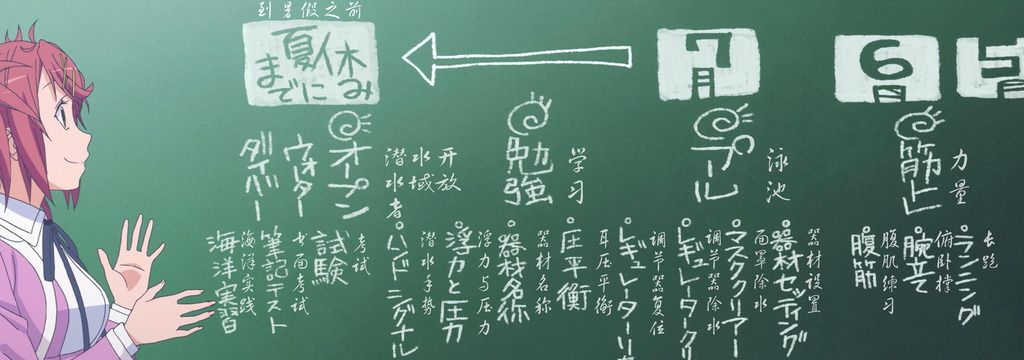 5月
6月
筋トレ
力量
ランニング
长跑
腕立て
俯卧撑
腹筋
腹肌练习
7月
プール
泳池
器材セッティング
器材设置
マスククリアー
面罩除水
レギュレータークリ
调节器除水
レギュレーターリ
调节器复位
勉強
学习
圧平衡
耳压平衡
器材名称
器材名称
浮力と圧力
浮力与压力
ハンドシグナル
潜水手势
到暑假之前
夏休み
までに
オープン
ウォーター
ダイバー
开放
水域
潜水者
試験
考试
筆記テスト
书面考试
海洋実習
海洋实践